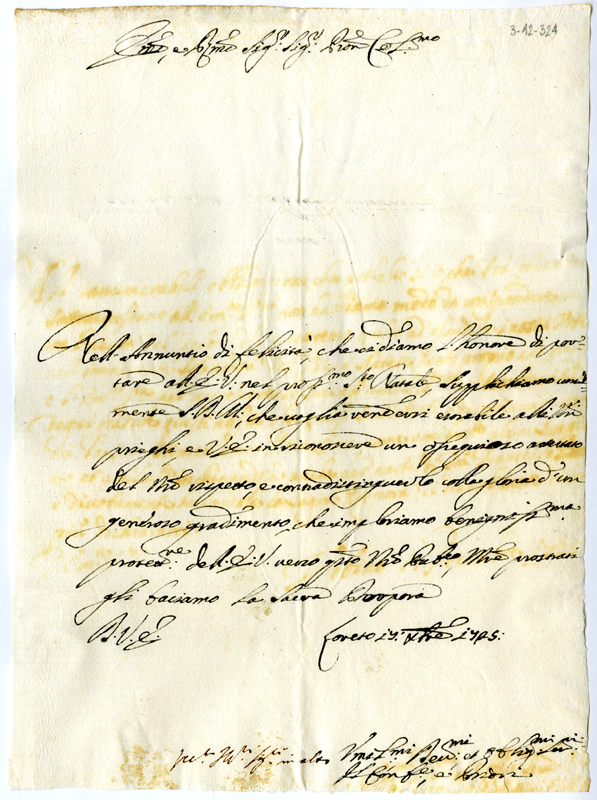 3-12-324
Em̃o, e Rm̃o Sig.r Sig.r Pron.e Col.mo
Nell Annuntio di felicità, che ci diamo l'honore di por-
tare all E. V. nel pross.mo S.to Natale, supplichiamo umil-
mente S. D. M., che voglia rendersi esorabile alli Nri
prieghi, e V. E. in riconoscere un ossequioso attestato
del Nr̃o rispetto, e contradistinguerlo colla gloria d'un
generoso gradimento, che imploriamo benignissima
protez.ne dell E. V. verso q̃sto Nr̃o Pub.co, M̃re prostrati
gli baciamo la Sacra Porpora
D. V. E.
Loreto 17. Xbre 1725.
Um.mi Dev.mi et Oblig.mi
Il Conf.e, e Priori